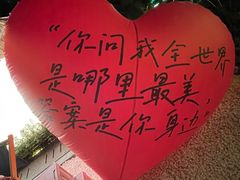 “你问我全世界
是哪里最美
答案是你身边”